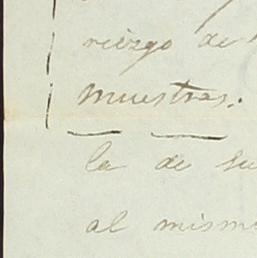 riezgo de
muestras.
la de su
al mismo